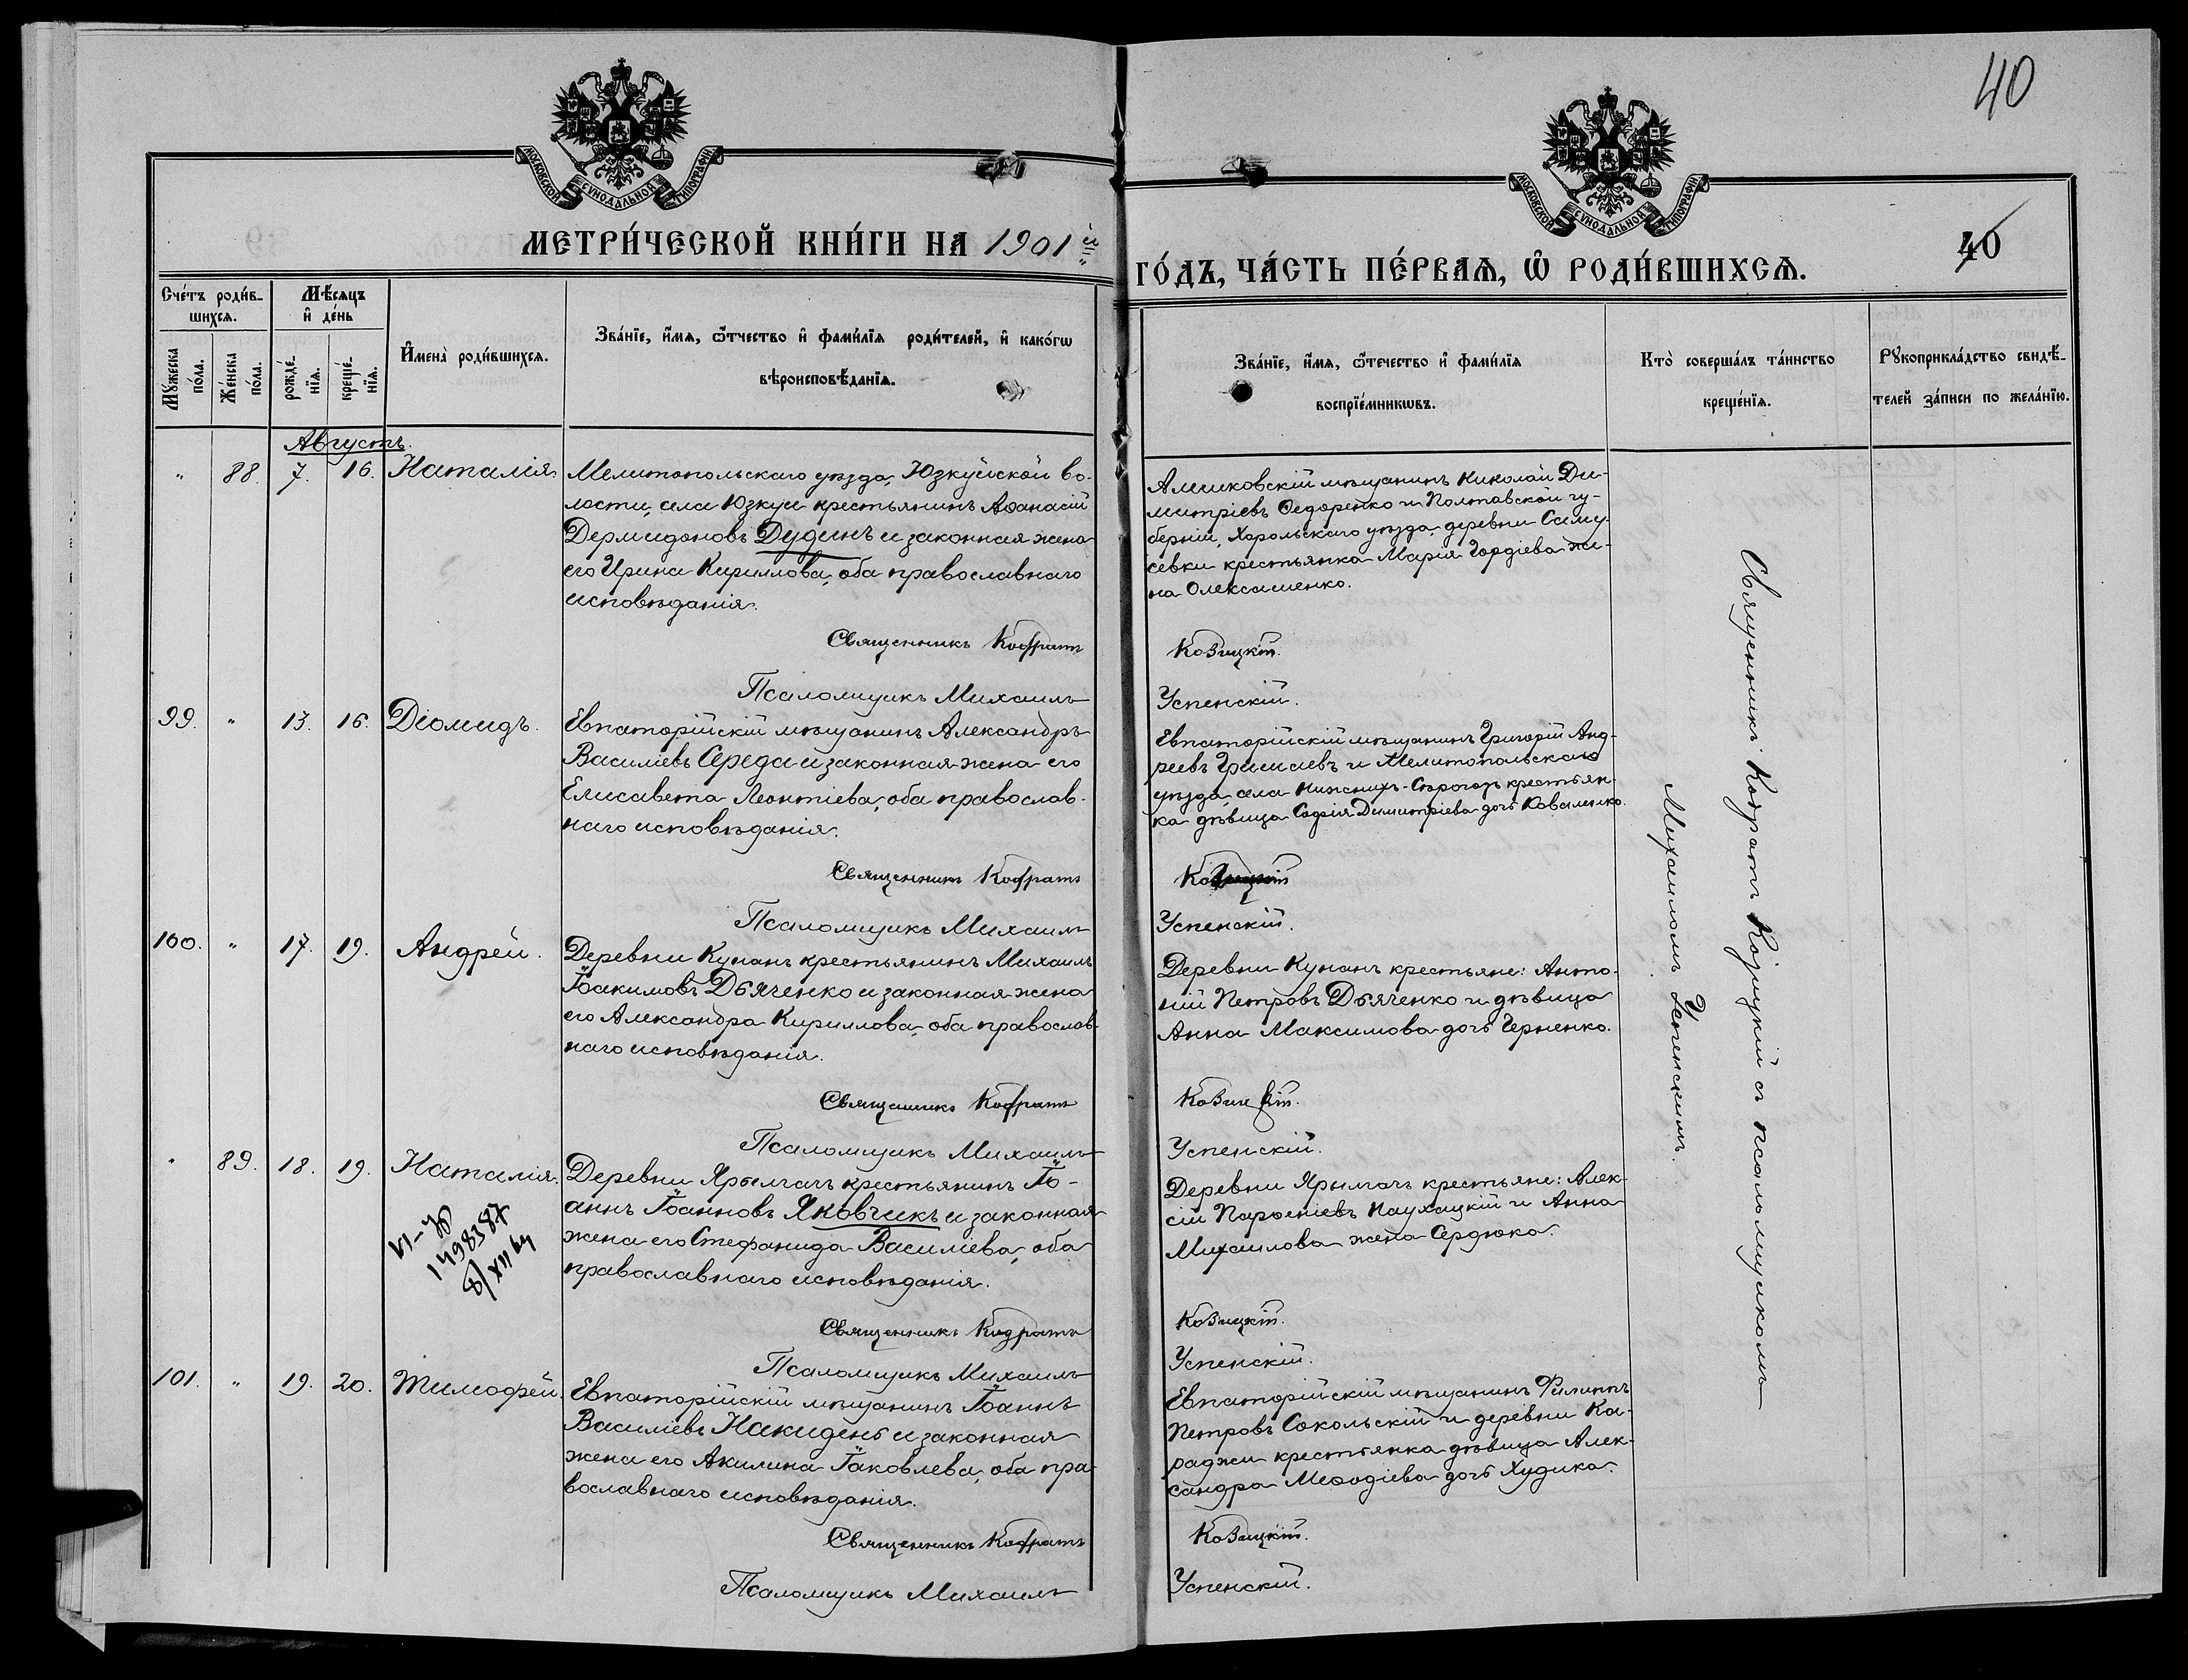 40
МОСКОВСКОЙ СѴНОДАЛЬНОЙ ТИПОГРАФІИ
МОСКОВСКОЙ СѴНОДАЛЬНОЙ ТИПОГРАФІИ
МЕТРИ́ЧЕСКОЙ КНИ́ГИ НА 1901 й
ГО́ДЪ, ЧА́СТЬ ПЕ́РВАѦ, Ѡ РОДИ́ВШИХСѦ.
40
Сче́тъ роди́в-
шихсѧ.
Мѣ́сѧцъ
и де́нь
Мꙋжеска
по́ла.
Же́нска
по́ла.
рожде́-
нїѧ.
креще́-
нїѧ.
И҆мена̀ роди́вшихсѧ.
Зва́нїе, и҆́мѧ, ѻ҆́тчество и҆ фами́лїѧ роди́телей, и҆ како́гѡ
вѣроисповѣ́данїѧ.
Зва́нїе, и҆́мѧ, ѻ҆́течество и҆ фами́лїѧ
воспрїе́мникѡвъ.
Кто̀ соверша́лъ та́инство
креще́нїѧ.
Рꙋкоприкла́дство свидѣ́-
телей за́писи по жела́нїю.
Августъ.
" 88. 7. 16. Наталія.
Мелитопольскаго уѣзда, Юзкуйской во-
лости, села Юзкуи крестьянинъ Аѳанасій
Дермидоновъ Дудинъ и законная жена
его Ирина Кириллова, оба православнаго
исповѣданія.
Священникъ Кодратъ
Псаломщикъ Михаилъ
Алешковскій мѣщанинъ Николай Ди-
митріевъ Ѳедоренко и Полтавской гу-
берніи, Хорольскаго уѣзда, деревни Симу-
севки крестьянка Марія Гордіева же-
на Олексиенко.
Козицкій.
Успенскій.
99. " 13. 16. Діомидъ.
Евпаторійскій мѣщанинъ Александръ
Василіевъ Середа и законная жена его
Елисавета Леонтіева, оба православ-
наго исповѣданія.
Священникъ Кодратъ
Псаломщикъ Михаилъ
Евпаторійскій мѣщанинъ Григорій Анд-
реевъ и Мелитопольскаго
уѣзда, села Нижнихъ-Сѣрогозъ крестьян-
ка дѣвица Софія Димитріева дочь Коваленко.
Козицкій
Успенскій.
100. " 17. 19. Андрей.
Деревни Кунанъ крестьянинъ Михаилъ
Іоакимовъ Дьяченко и законная жена
его Александра Кириллова, оба православ-
наго исповѣданія.
Священникъ Кодратъ
Псаломщикъ Михаилъ
Деревни Кунанъ крестьяне: Анто-
ній Петровъ Дьяченко и дѣвица
Анна Максимова дочь Черненко.
Козицкій.
Успенскій.
" 89. 18. 19. Наталія.
1498387
8/XII 64
Деревни Ярылгачъ крестьянинъ Іо-
аннъ Іоанновъ Яковчикъ и законная
жена его Стефанида Василіева, оба
православнаго исповѣданія.
Священникъ Кодратъ
Псаломщикъ Михаилъ
Деревни Ярылгачъ крестьяне: Алек-
сій Парѳеніевъ Наухацкій и Анна
Михаилова жена Сердюка.
Козицкій.
Успенскій.
101. " 19. 20. Тимофей.
Евпаторійскій мѣщанинъ Іоаннъ
Василіевъ Накидень и законная
жена его Акилина Іаковлева, оба пра-
вославнаго исповѣданія.
Священникъ Кодратъ
Псаломщикъ Михаилъ
Евпаторійскій мѣщанинъ Филиппъ
Петровъ Сокольскій и деревни Ка-
раджи крестьянка дѣвица Алек-
сандра Меѳодіева дочь Худика.
Козицкій.
Успенскій.
Священникъ Кодратъ Козицкій съ псаломщикомъ
Михаиломъ Успенскимъ.